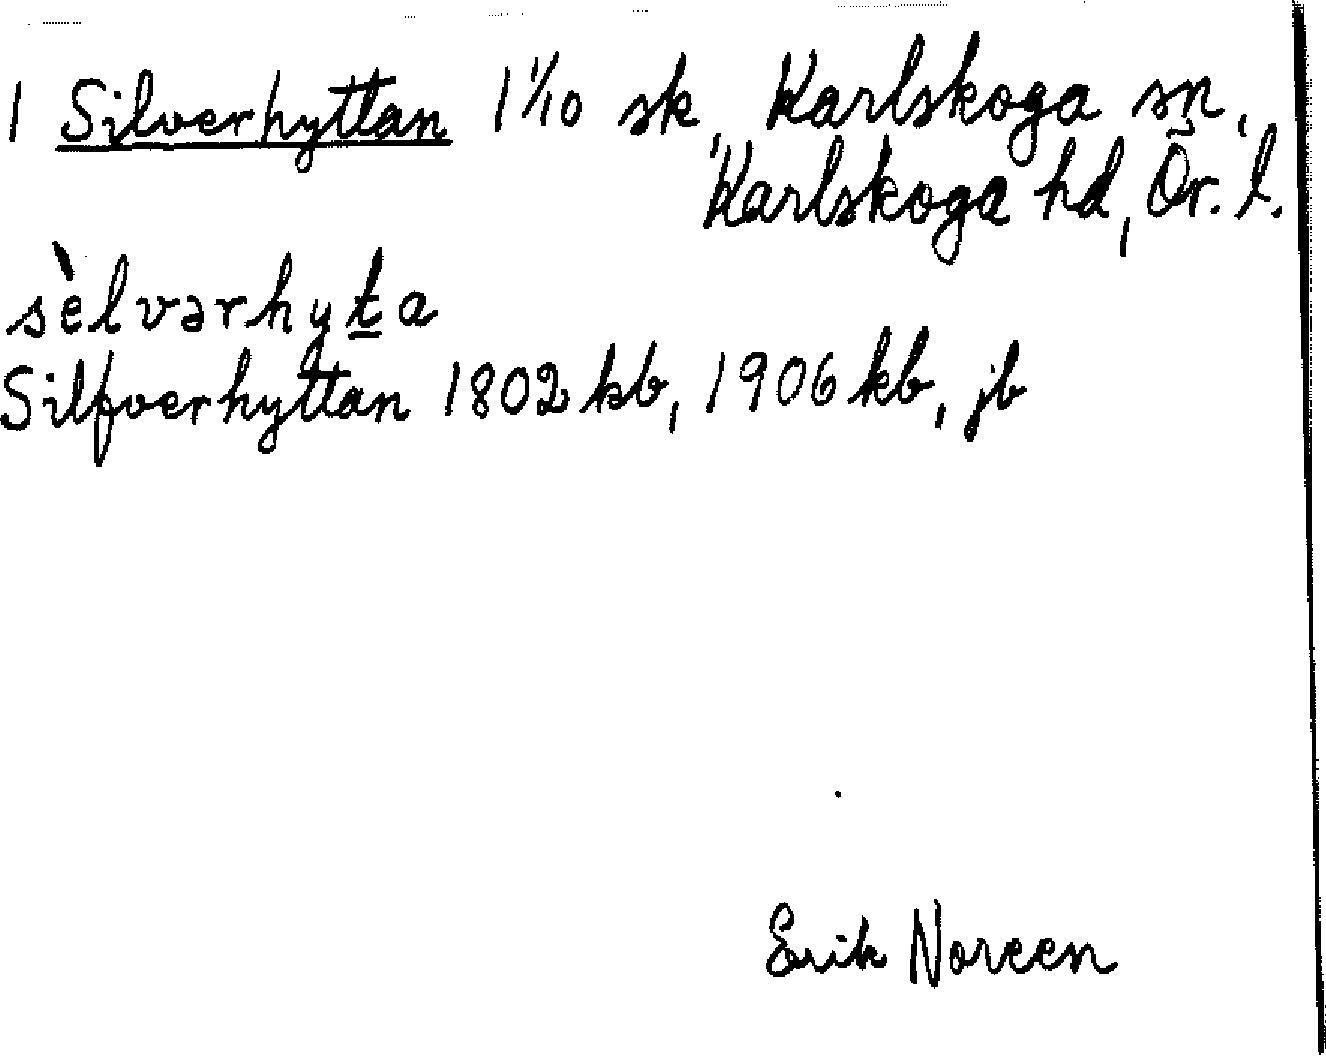 1 Silverhyttan 1 1/10 sk, Karlskoga sn,
Karlskoga hd, Ör. l.
sèlvərhyṯa
Silfverhyttan 1802 kb, 1906 kb, jb
Erik Noreen